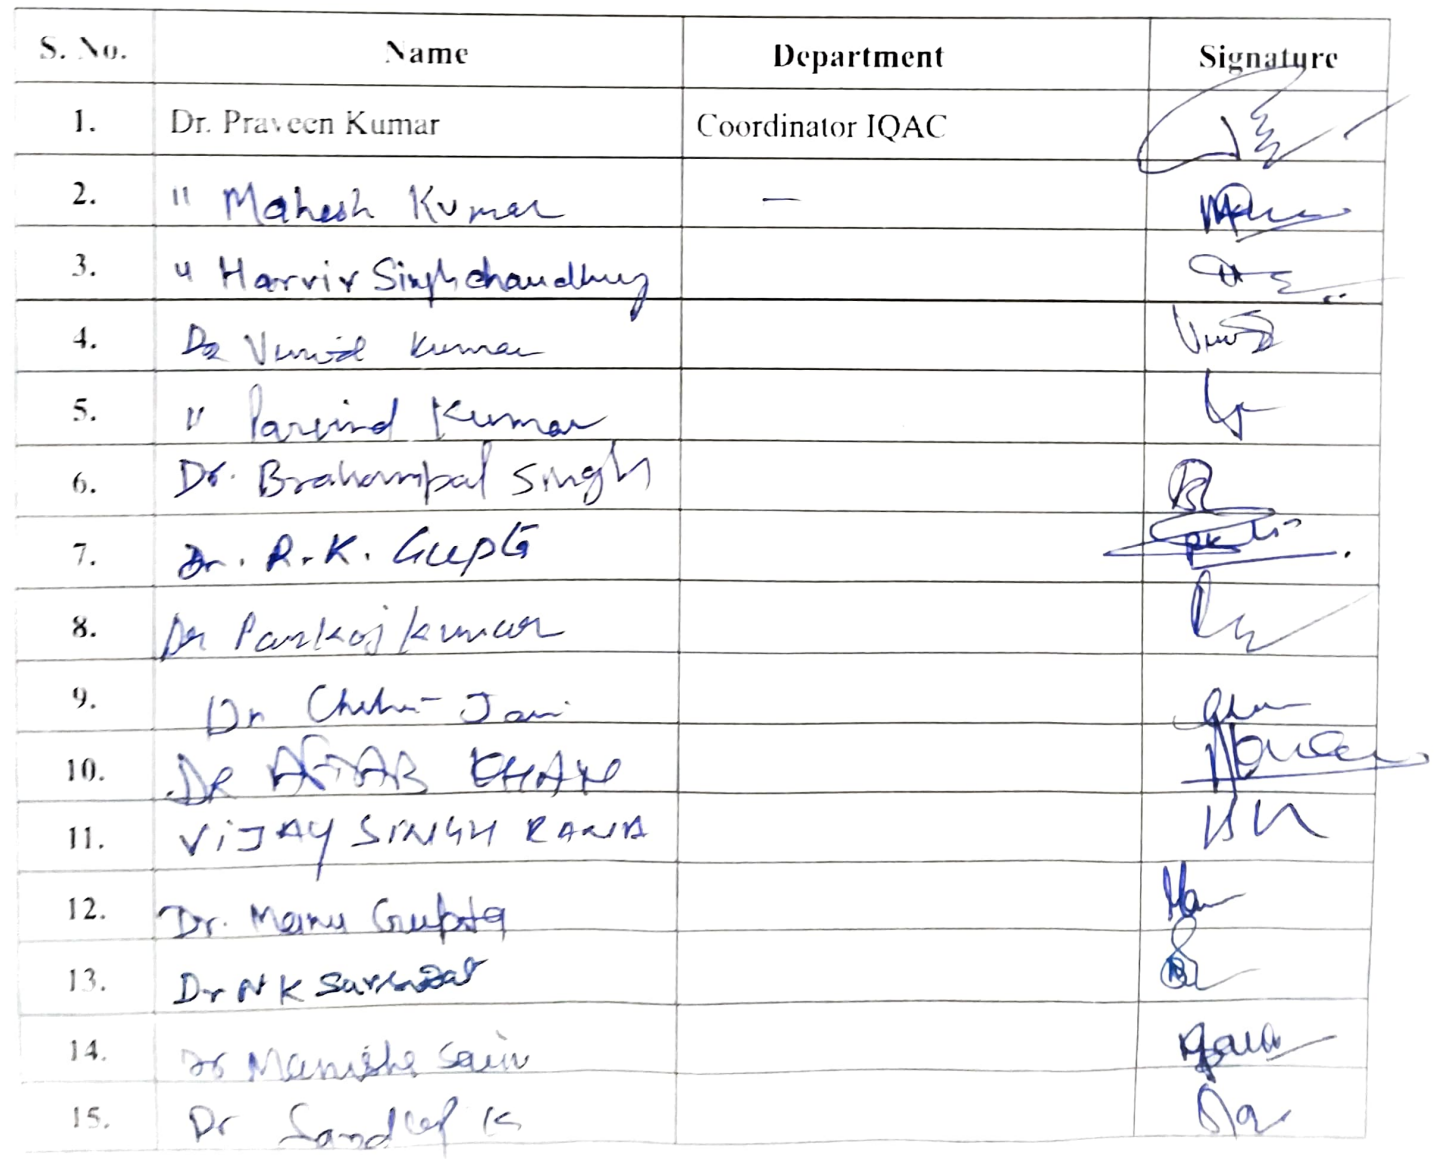 S. No. Name Department Signature
1. Dr. Praveen Kumar Coordinator IQAC
2. " Mahesh Kumar —
3. " Harvir Singh chaudhary
4. Dr Vinod Kumar
5. " Parvind Kumar
6. Dr. Brahampal Singh
7. Dr. R.K. Gupta
8. Dr Pankaj Kumar
9. Dr
10. DR AFTAB KHAN
11. ViJAY SINGH RANA
12. Dr. Manu Gupta
13. Dr N K
14. Dr Manisha
15. Dr Sandeep K